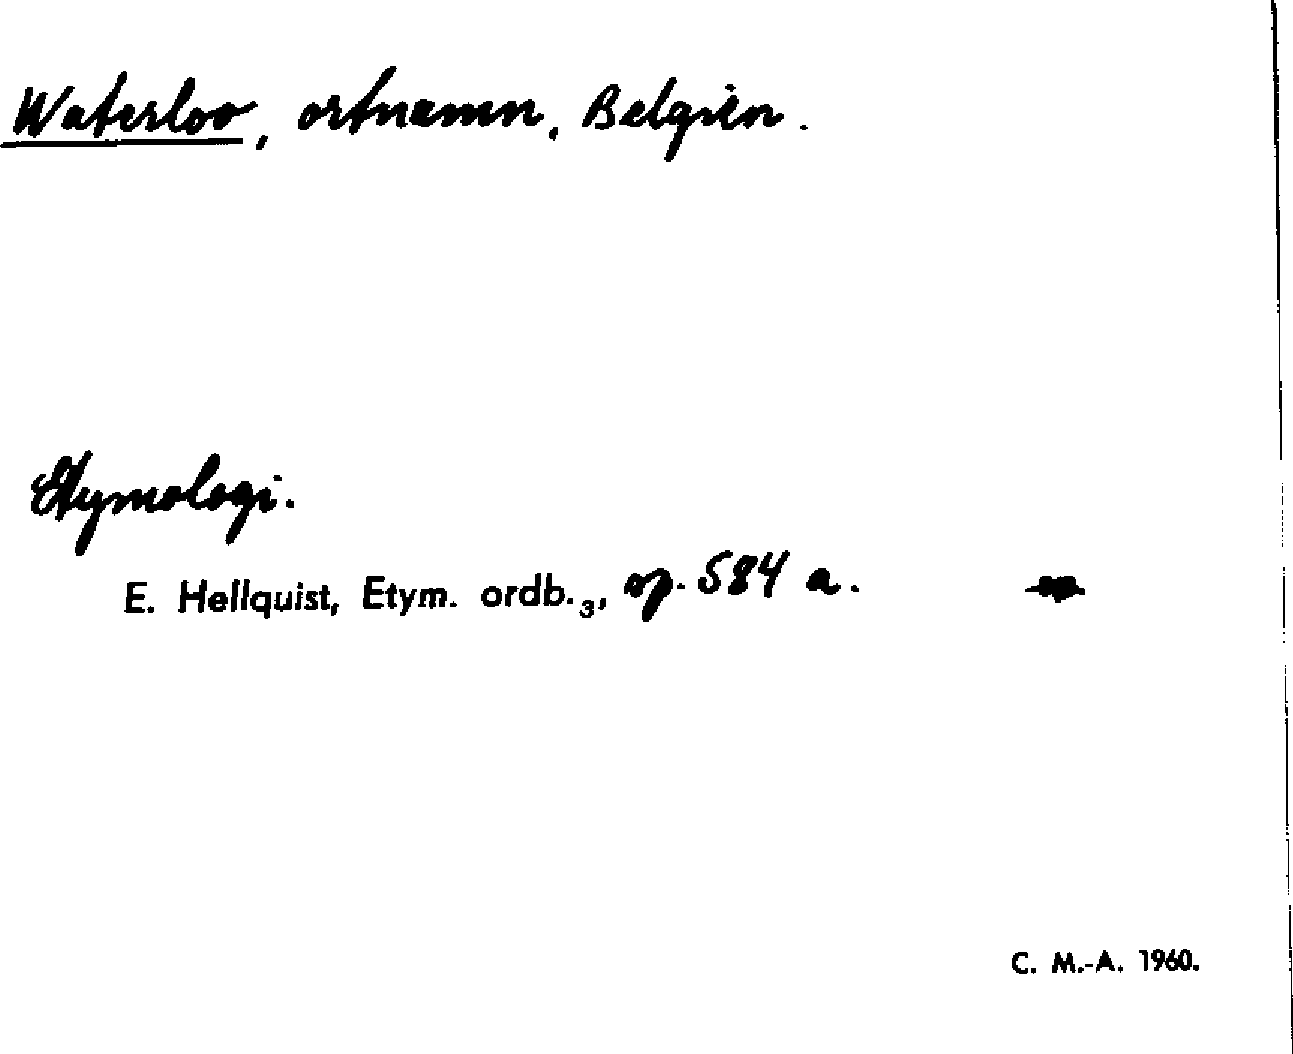 Waterloo, ortnamn, Belgien.
Etymologi.
E. Hellquist, Etym. ordb.₃, sp. 584 a.
C. M.-A. 1960.